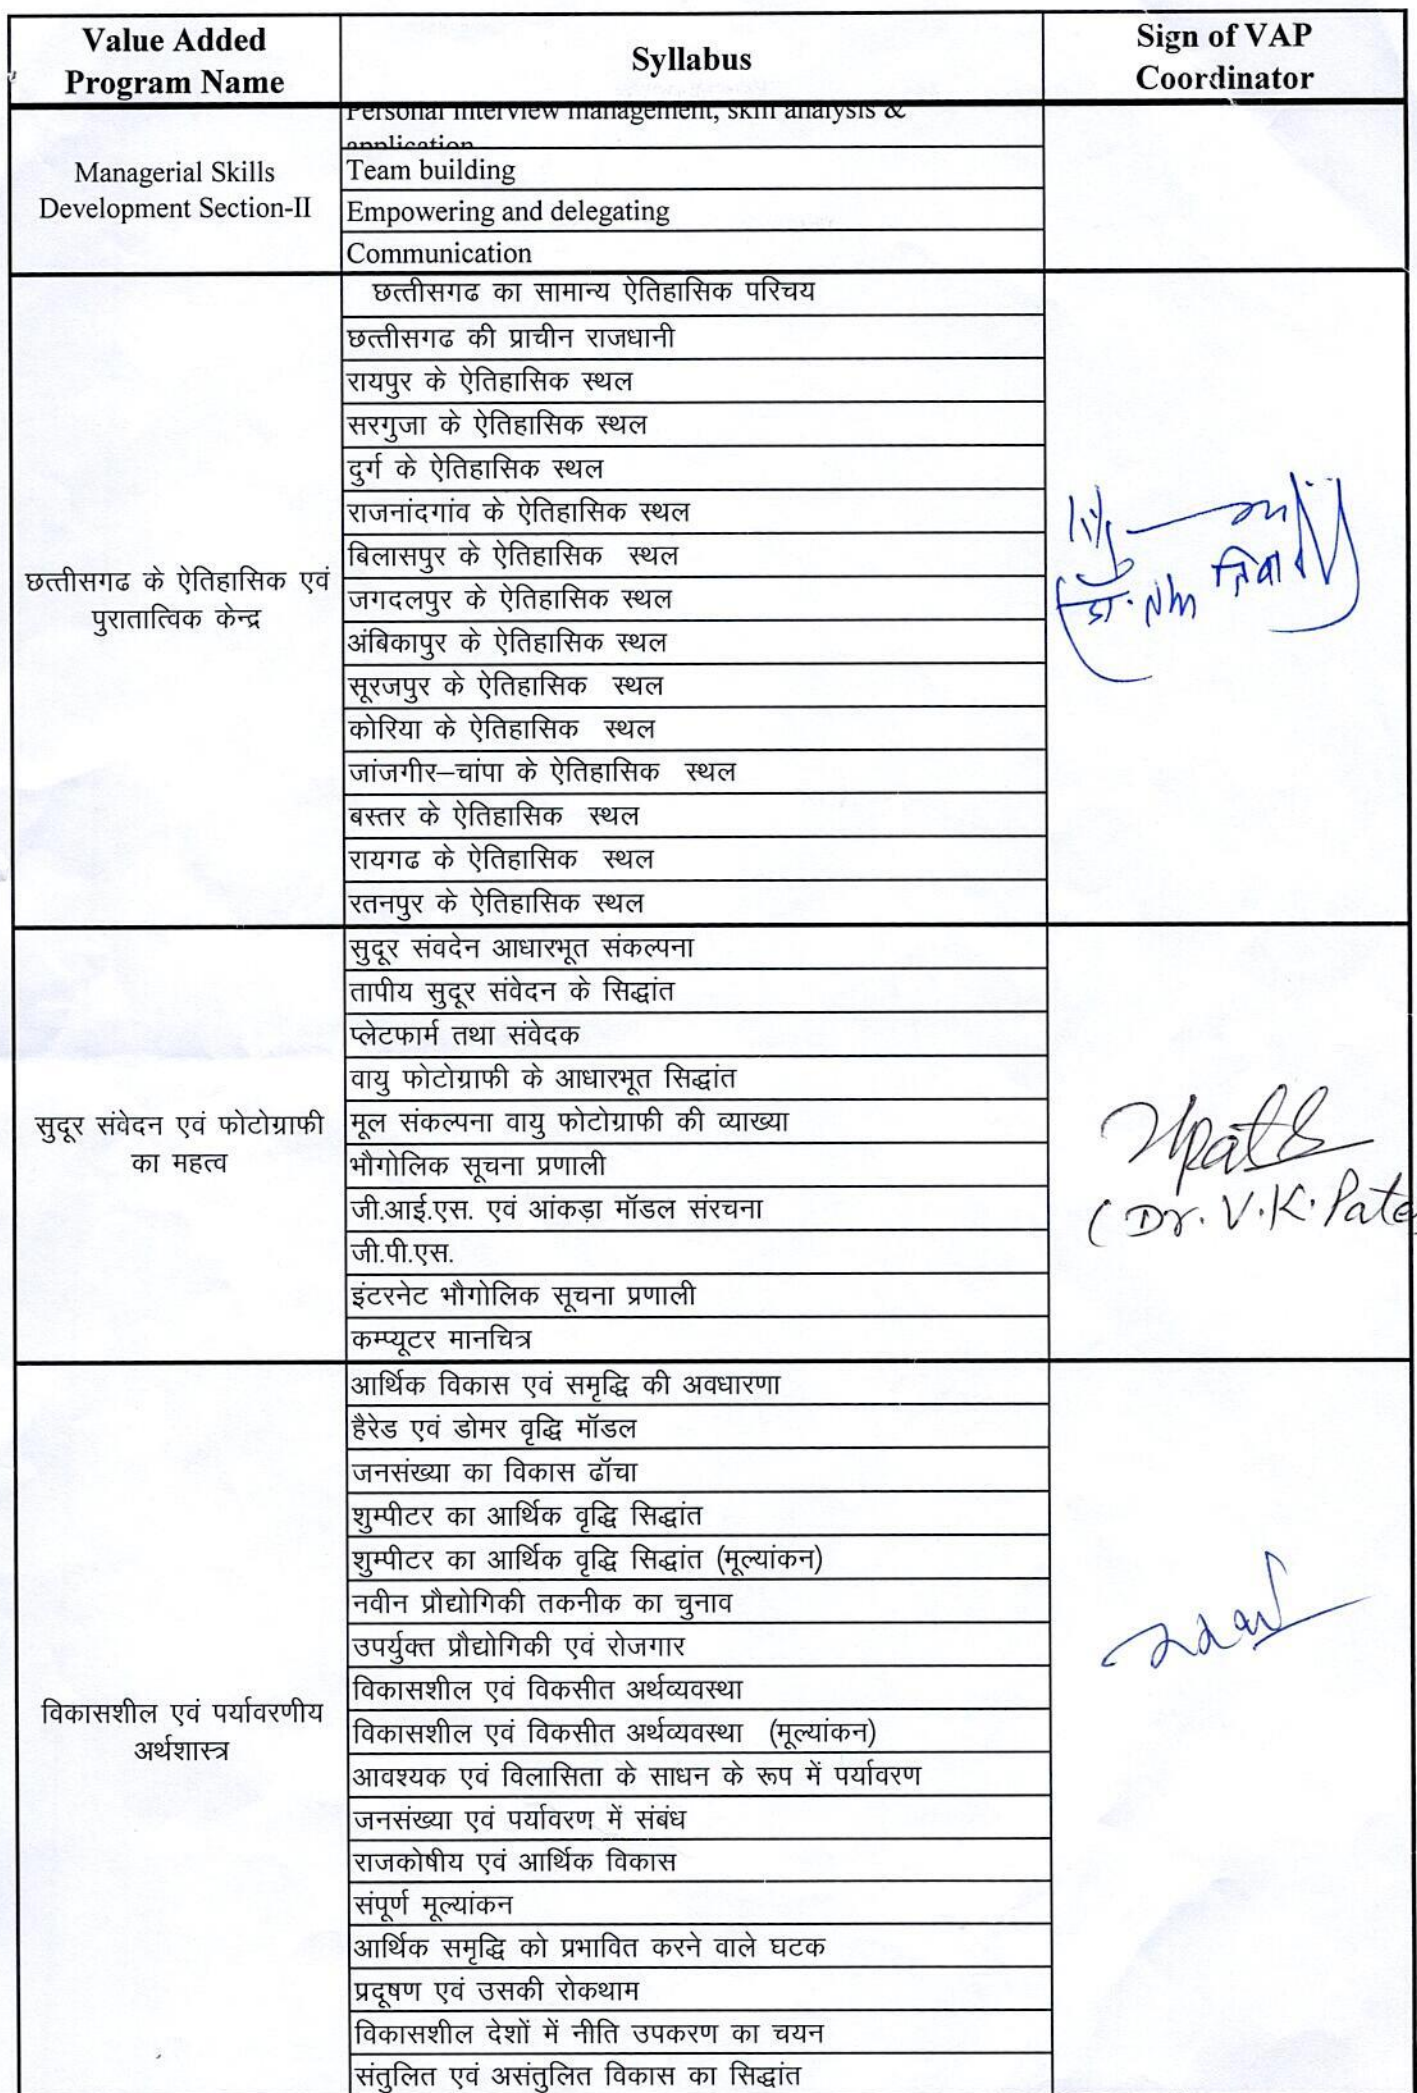 Value Added
Program Name
Syllabus
Sign of VAP
Coordinator
Managerial Skills
Development Section-II
Personal interview management, skill analysis &
application
Team building
Empowering and delegating
Communication
छत्तीसगढ के ऐतिहासिक एवं
पुरातात्विक केन्द्र
छत्तीसगढ का सामान्य ऐतिहासिक परिचय
छत्तीसगढ की प्राचीन राजधानी
रायपुर के ऐतिहासिक स्थल
सरगुजा के ऐतिहासिक स्थल
दुर्ग के ऐतिहासिक स्थल
राजनांदगांव के ऐतिहासिक स्थल
बिलासपुर के ऐतिहासिक स्थल
जगदलपुर के ऐतिहासिक स्थल
अंबिकापुर के ऐतिहासिक स्थल
सूरजपुर के ऐतिहासिक स्थल
कोरिया के ऐतिहासिक स्थल
जांजगीर–चांपा के ऐतिहासिक स्थल
बस्तर के ऐतिहासिक स्थल
रायगढ के ऐतिहासिक स्थल
रतनपुर के ऐतिहासिक स्थल
सुदूर संवेदन एवं फोटोग्राफी
का महत्व
सुदूर संवदेन आधारभूत संकल्पना
तापीय सुदूर संवेदन के सिद्धांत
प्लेटफार्म तथा संवेदक
वायु फोटोग्राफी के आधारभूत सिद्धांत
मूल संकल्पना वायु फोटोग्राफी की व्याख्या
भौगोलिक सूचना प्रणाली
जी.आई.एस. एवं आंकड़ा मॉडल संरचना
जी.पी.एस.
इंटरनेट भौगोलिक सूचना प्रणाली
कम्प्यूटर मानचित्र
(Dr. V.K. Pate
विकासशील एवं पर्यावरणीय
अर्थशास्त्र
आर्थिक विकास एवं समृद्धि की अवधारणा
हैरेड एवं डोमर वृद्धि मॉडल
जनसंख्या का विकास ढॉचा
शुम्पीटर का आर्थिक वृद्धि सिद्धांत
शुम्पीटर का आर्थिक वृद्धि सिद्धांत (मूल्यांकन)
नवीन प्रौद्योगिकी तकनीक का चुनाव
उपर्युक्त प्रौद्योगिकी एवं रोजगार
विकासशील एवं विकसीत अर्थव्यवस्था
विकासशील एवं विकसीत अर्थव्यवस्था (मूल्यांकन)
आवश्यक एवं विलासिता के साधन के रूप में पर्यावरण
जनसंख्या एवं पर्यावरण में संबंध
राजकोषीय एवं आर्थिक विकास
संपूर्ण मूल्यांकन
आर्थिक समृद्धि को प्रभावित करने वाले घटक
प्रदूषण एवं उसकी रोकथाम
विकासशील देशों में नीति उपकरण का चयन
संतुलित एवं असंतुलित विकास का सिद्धांत